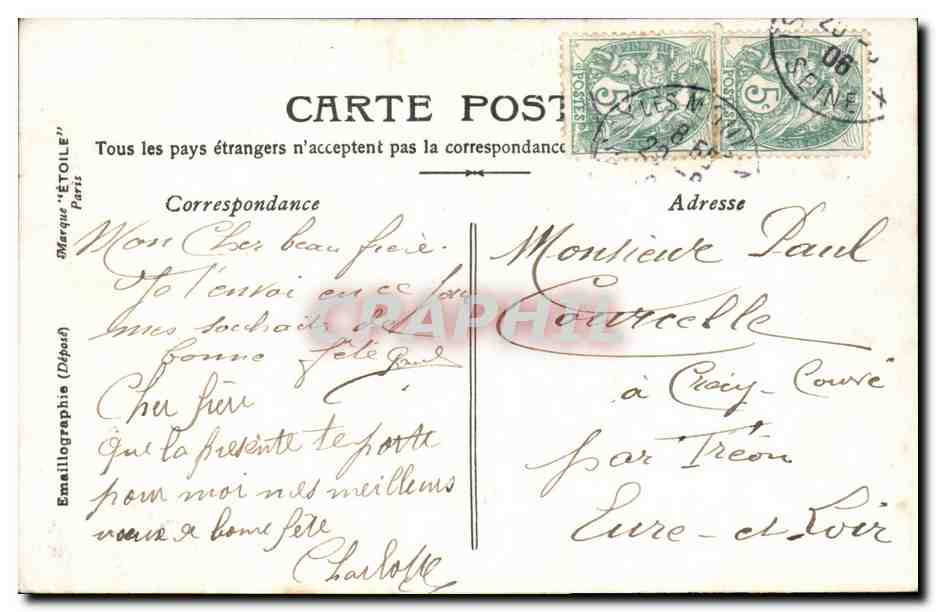 CARTE POST
Tous les pays étrangers n'acceptent pas la correspondance
Correspondance
Mon Cher beau frère.
Je t'envoi en ce jour
mes souhaits de
bonne fête
Cher frère
Que la présente te porte
pour moi mes meilleurs
vœux de bonne fête
Charlotte
Adresse
Monsieur Paul
Courcelle
à Crécy-Couvé
par Tréon
Eure-et-Loir
Marque "ÉTOILE"
Paris
Emaillographie (Déposé)
5c
POSTES
5c
POSTES
LES M
SEINE
06
CRAPHIL